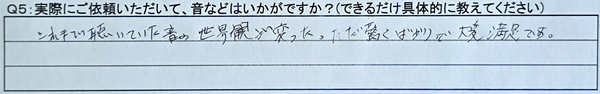 Q5:実際にご依頼いただいて、音などはいかがですか?(できるだけ具体的に教えてください)
これまで聴いていた音の世界観が変った、ただ驚くばかりで大変満足です。